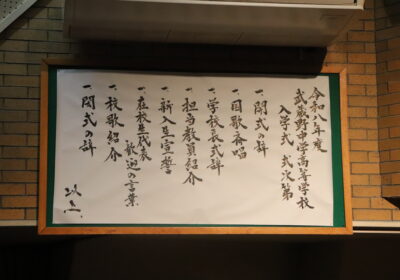 令和八年度
武蔵野中学高等学校
入学式 式次第
一、開式の辞
一、国歌斉唱
一、学校長式辞
一、担当教員紹介
一、新入生宣誓
一、在校生代表
歓迎の言葉
一、校歌紹介
一、閉式の辞
以上